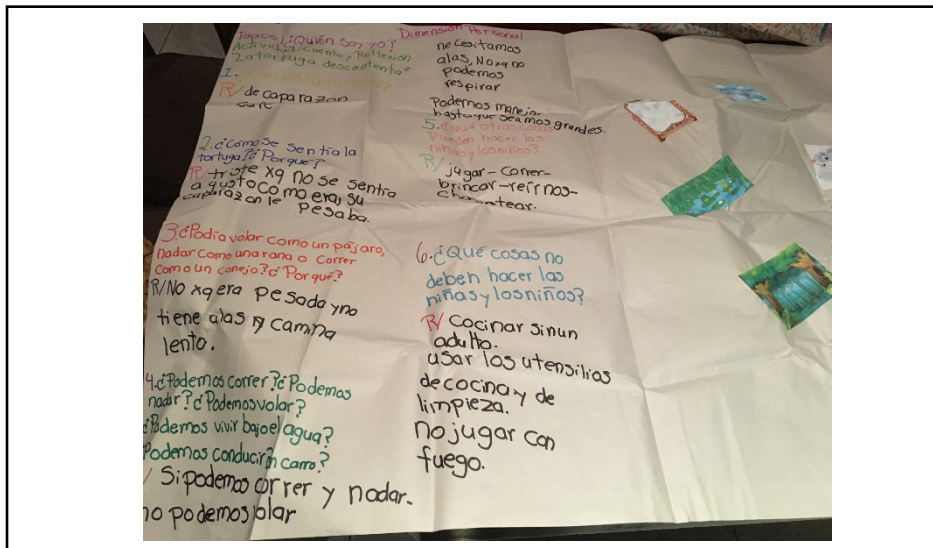 Topico 1: ¿Quién soy yo?
Actividad: cuento y Reflexión
"La tortuga descontenta"
1.
R/ de caparazon
2. ¿Cómo se sentía la
tortuga? ¿Porque?
R/ triste xq no se sentía
a gusto como era, su
caparazon le
pesaba.
3. ¿Podía volar como un pájaro,
nadar como una rana o correr
como un conejo? ¿Porqué?
R/ No xq era pesada y no
tiene alas y camina
lento.
4. ¿Podemos correr? ¿Podemos
nadar? ¿Podemos volar?
¿Podemos vivir bajo el agua?
Podemos conducir un carro?
/ Si podemos correr y nadar.
no podemos volar
Dimensión Personal
necesitamos
alas, No xq no
podemos
respirar
Podemos manejar
hasta que seamos grandes.
5. ¿Qué otras cosas
pueden hacer las
niñas y los niños?
R/ jugar - comer -
brincar - reírnos -
6. ¿Qué cosas no
deben hacer las
niñas y los niños?
R/ Cocinar sin un
adulto.
usar los utensilios
de cocina y de
limpieza.
no jugar con
fuego.